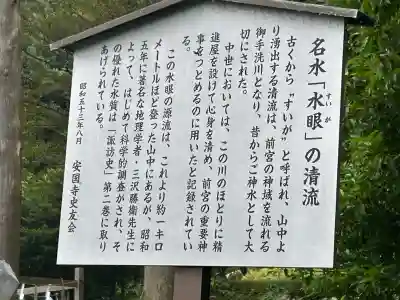 名水「水眼」の清流
すいが
古くから〝すいが〟と呼ばれ、山中よ
り湧出する清流は、前宮の神域を流れる
御手洗川となり、昔からご神水として大
切にされた。
中世においては、この川のほとりに精
進屋を設けて心身を清め、前宮の重要神
事をつとめるのに用いたと記録されてい
る。
この水眼の源流は、これより約一キロ
メートルほど登った山中にあるが、昭和
五年に著名な地理学者・三沢勝衛先生に
よって、はじめて科学的調査がされ、そ
の優れた水質は「諏訪史」第二巻に取り
あげられている。
昭和五十三年八月
安国寺史友会